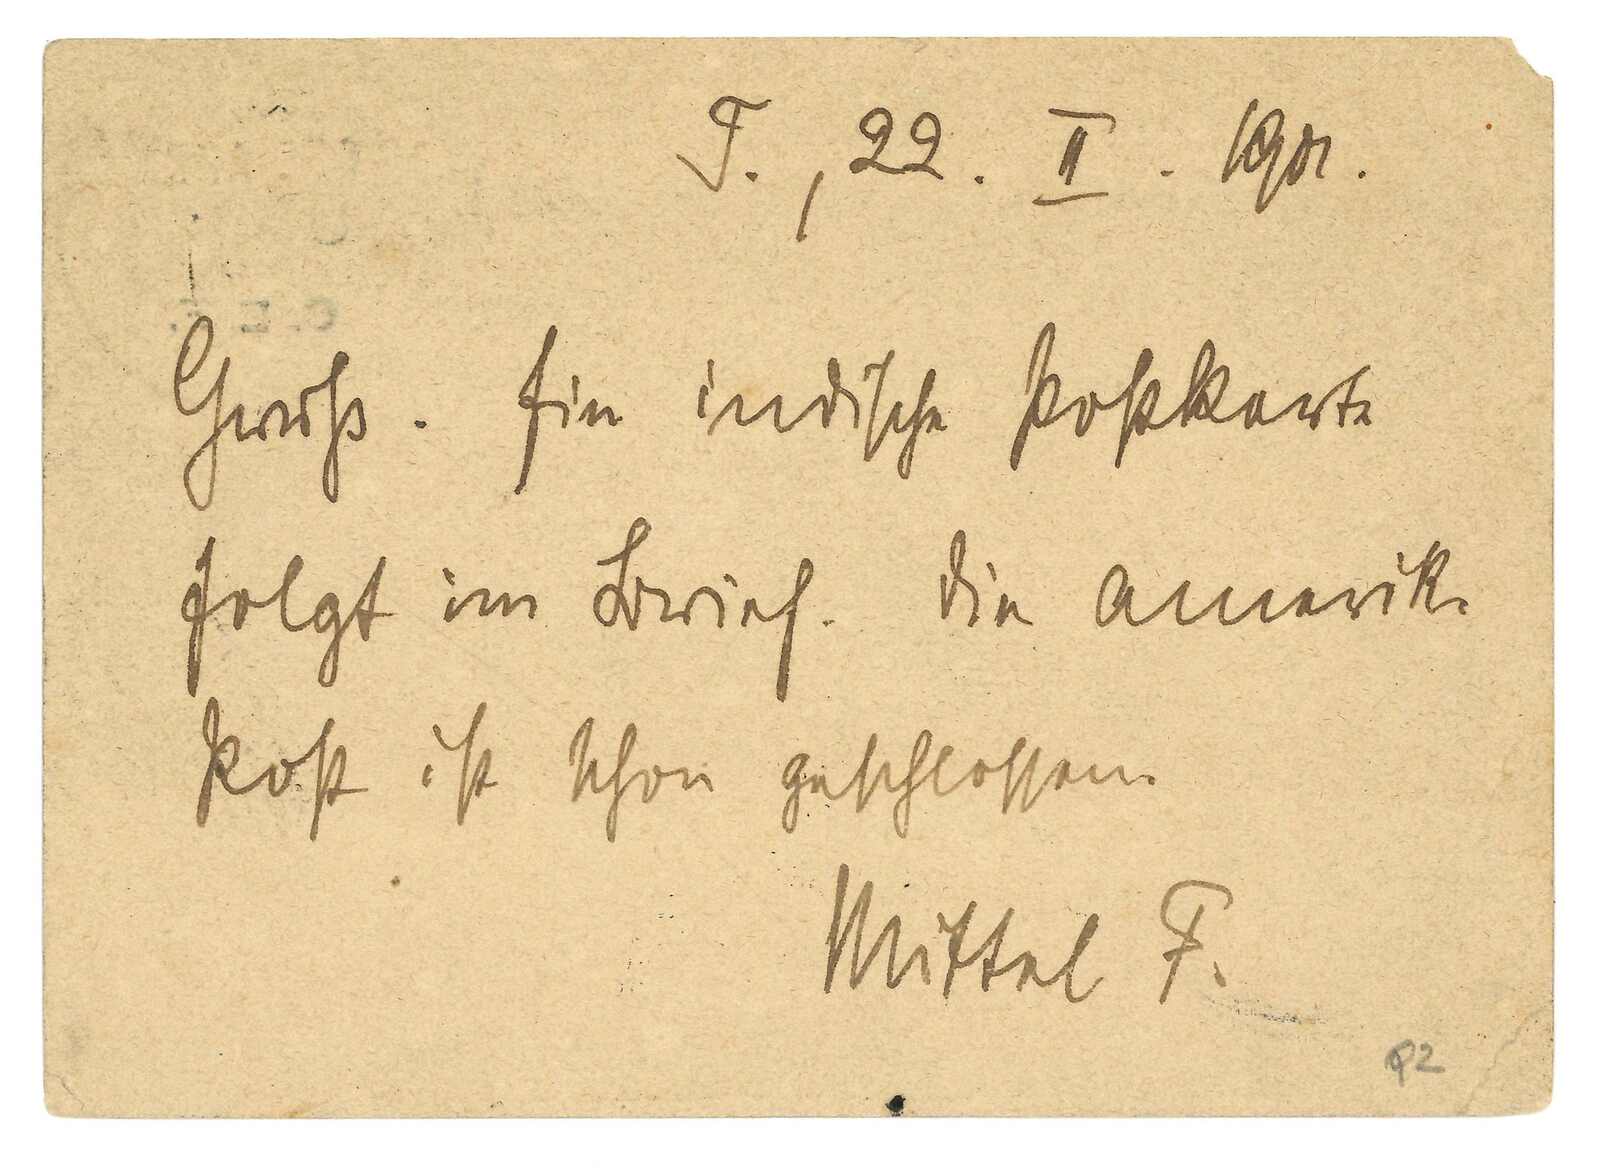 T., 22. II. 1901.
Gruß. Ein indische Postkarte
folgt im Brief. Die amerik.
Post ist schon geschlossen.
Mittel F.